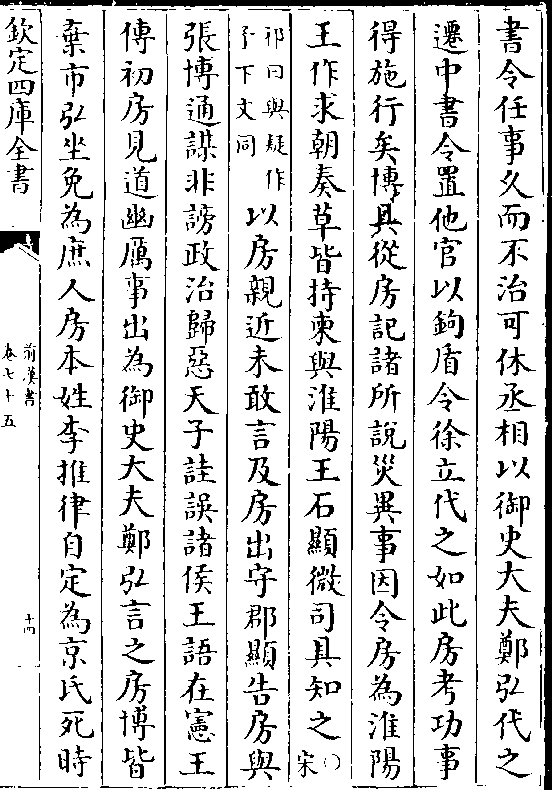 書令任事久而不治可休丞相以御史大夫鄭弘代之
遷中書令置他官以鉤盾令徐立代之如此房考功事
得施行矣博具從房記諸所說災異事因令房為淮陽
王作求朝奏草皆持柬與淮陽王石顯微司具知之○宋
祁曰與疑作
予下文同
以房親近未敢言及房出守郡顯告房與
張博通謀非謗政治歸惡天子詿誤諸侯王語在憲王
傳初房見道幽厲事出為御史大夫鄭弘言之房博皆
棄市弘坐免為庶人房本姓李推律自定為京氏死時
欽定四庫全書
前漢書
卷七十五
十四